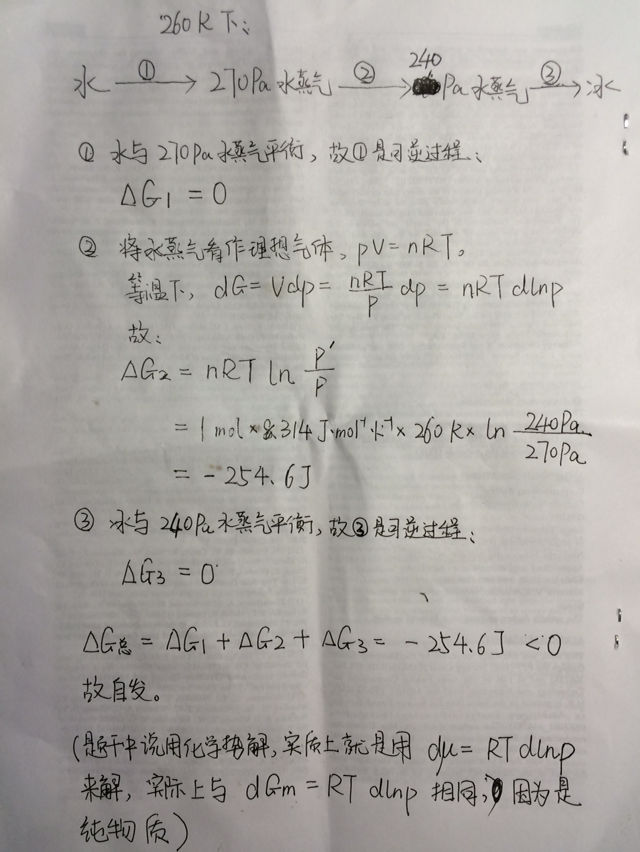 260K下:
水 ①→ 270Pa水蒸气 ②→ 240Pa水蒸气 ③→ 冰
① 水与270Pa水蒸气平衡，故①是可逆过程：
ΔG1 = 0
② 将水蒸气看作理想气体，pV=nRT。
等温下，dG=Vdp= nRT/p dp = nRT dlnp
故：
ΔG2 = nRT ln p'/p
= 1mol×8.314J·mol⁻¹·K⁻¹×260K×ln 240Pa/270Pa
= -254.6J
③ 冰与240Pa水蒸气平衡，故③是可逆过程：
ΔG3 = 0
ΔG总 = ΔG1 + ΔG2 + ΔG3 = -254.6J <0
故自发。
(题干中说用化学势解，实质上就是用 dμ= RT dlnp
来解，实际上与 dGm = RT dlnp 相同，因为是
纯物质)